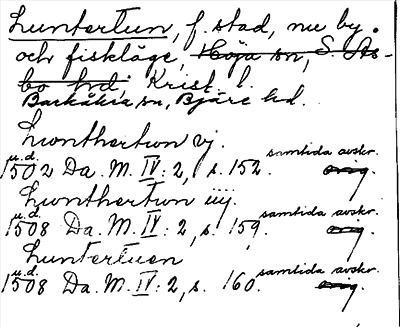 Luntertun, f. stad, nu by
och fiskläge, Höja sn, S. Ås-
bo hd, Krist. l.
Barkåkra sn, Bjäre hd.
Lwnthertwn vj.
u.d. samtida avskr.
1502 Da. M. IV: 2, s. 152. orig.
Lwnthertwn iiij.
u.d. samtida avskr.
1508 Da. M. IV: 2, s. 159. orig.
Luntertuen
u.d. samtida avskr.
1508 Da. M. IV: 2, s. 160. orig.